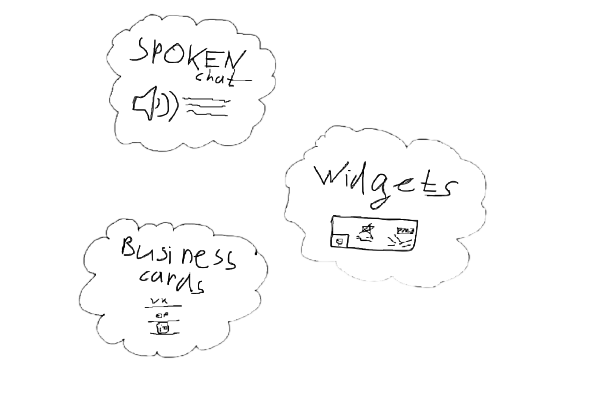 SPOKEN
chat
Widgets
Business
cards
VK